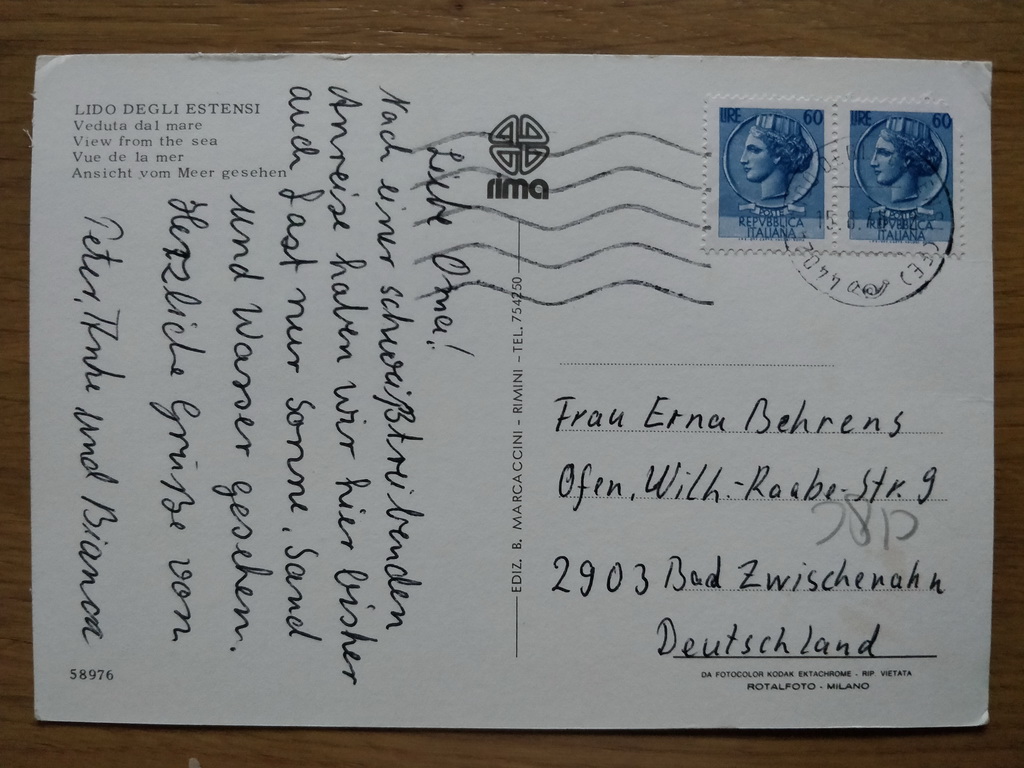 LIDO DEGLI ESTENSI
Veduta dal mare
View from the sea
Vue de la mer
Ansicht vom Meer gesehen
Liebe Oma!
Nach einer schweißtreibenden
Anreise haben wir hier bisher
auch fast nur Sonne, Sand
und Wasser gesehen.
Herzliche Grüße von
Peter, Anke und Bianca
58976
rima
EDIZ. B. MARCACCINI - RIMINI - TEL. 754250
LIRE 60
POSTE
REPVBBLICA
ITALIANA
LIRE 60
POSTE
REPVBBLICA
ITALIANA
15.8.
(FE)
Frau Erna Behrens
Ofen, Wilh.-Raabe-Str. 9
2903 Bad Zwischenahn
Deutschland
DA FOTOCOLOR KODAK EKTACHROME - RIP. VIETATA
ROTALFOTO - MILANO